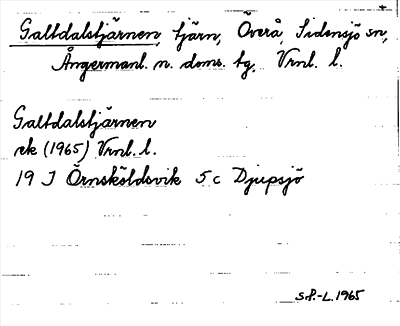 Galtdalstjärnen, tjärn, Överå, Sidensjö sn,
Ångermanl. n. doms. tg, Vrnl. l.
Galtdalstjärnen
ek (1965) Vrnl. l.
19 J Örnsköldsvik 5 c Djupsjö
S.P.-L. 1965